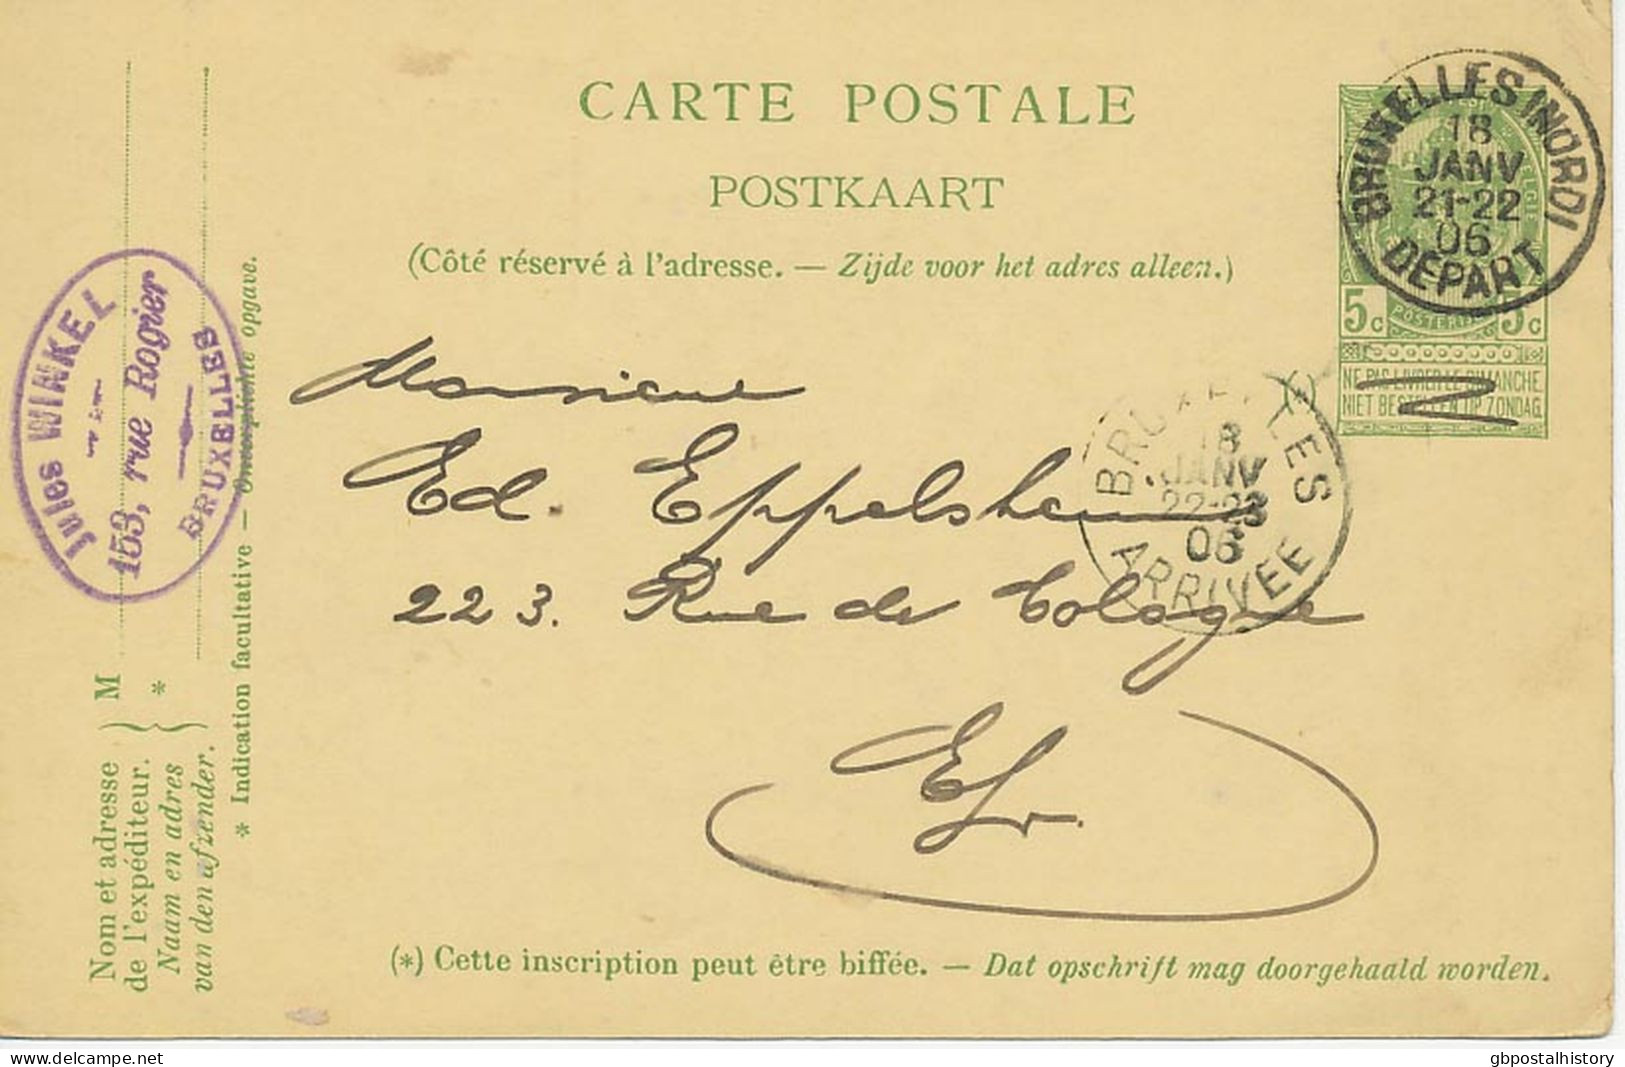 CARTE POSTALE
POSTKAART
(Côté réservé à l'adresse. — Zijde voor het adres alleen.)
BRUXELLES (NORD)
18
JANV
21-22
06
DEPART
5c 5c
NE PAS LIVRER LE DIMANCHE.
NIET BESTELLEN OP ZONDAG.
Jules WINKEL
153, rue Rogier
BRUXELLES
Monsieur
Ed. Eppelsheim
223. Rue de Cologne
BRUXELLES
18
JANV
22-23
06
ARRIVEE
Nom et adresse
de l'expéditeur.
Naam en adres
van den afzender.
M
*
* Indication facultative —
opgave.
(*) Cette inscription peut être biffée. — Dat opschrift mag doorgehaald worden.
gbpostalhistory